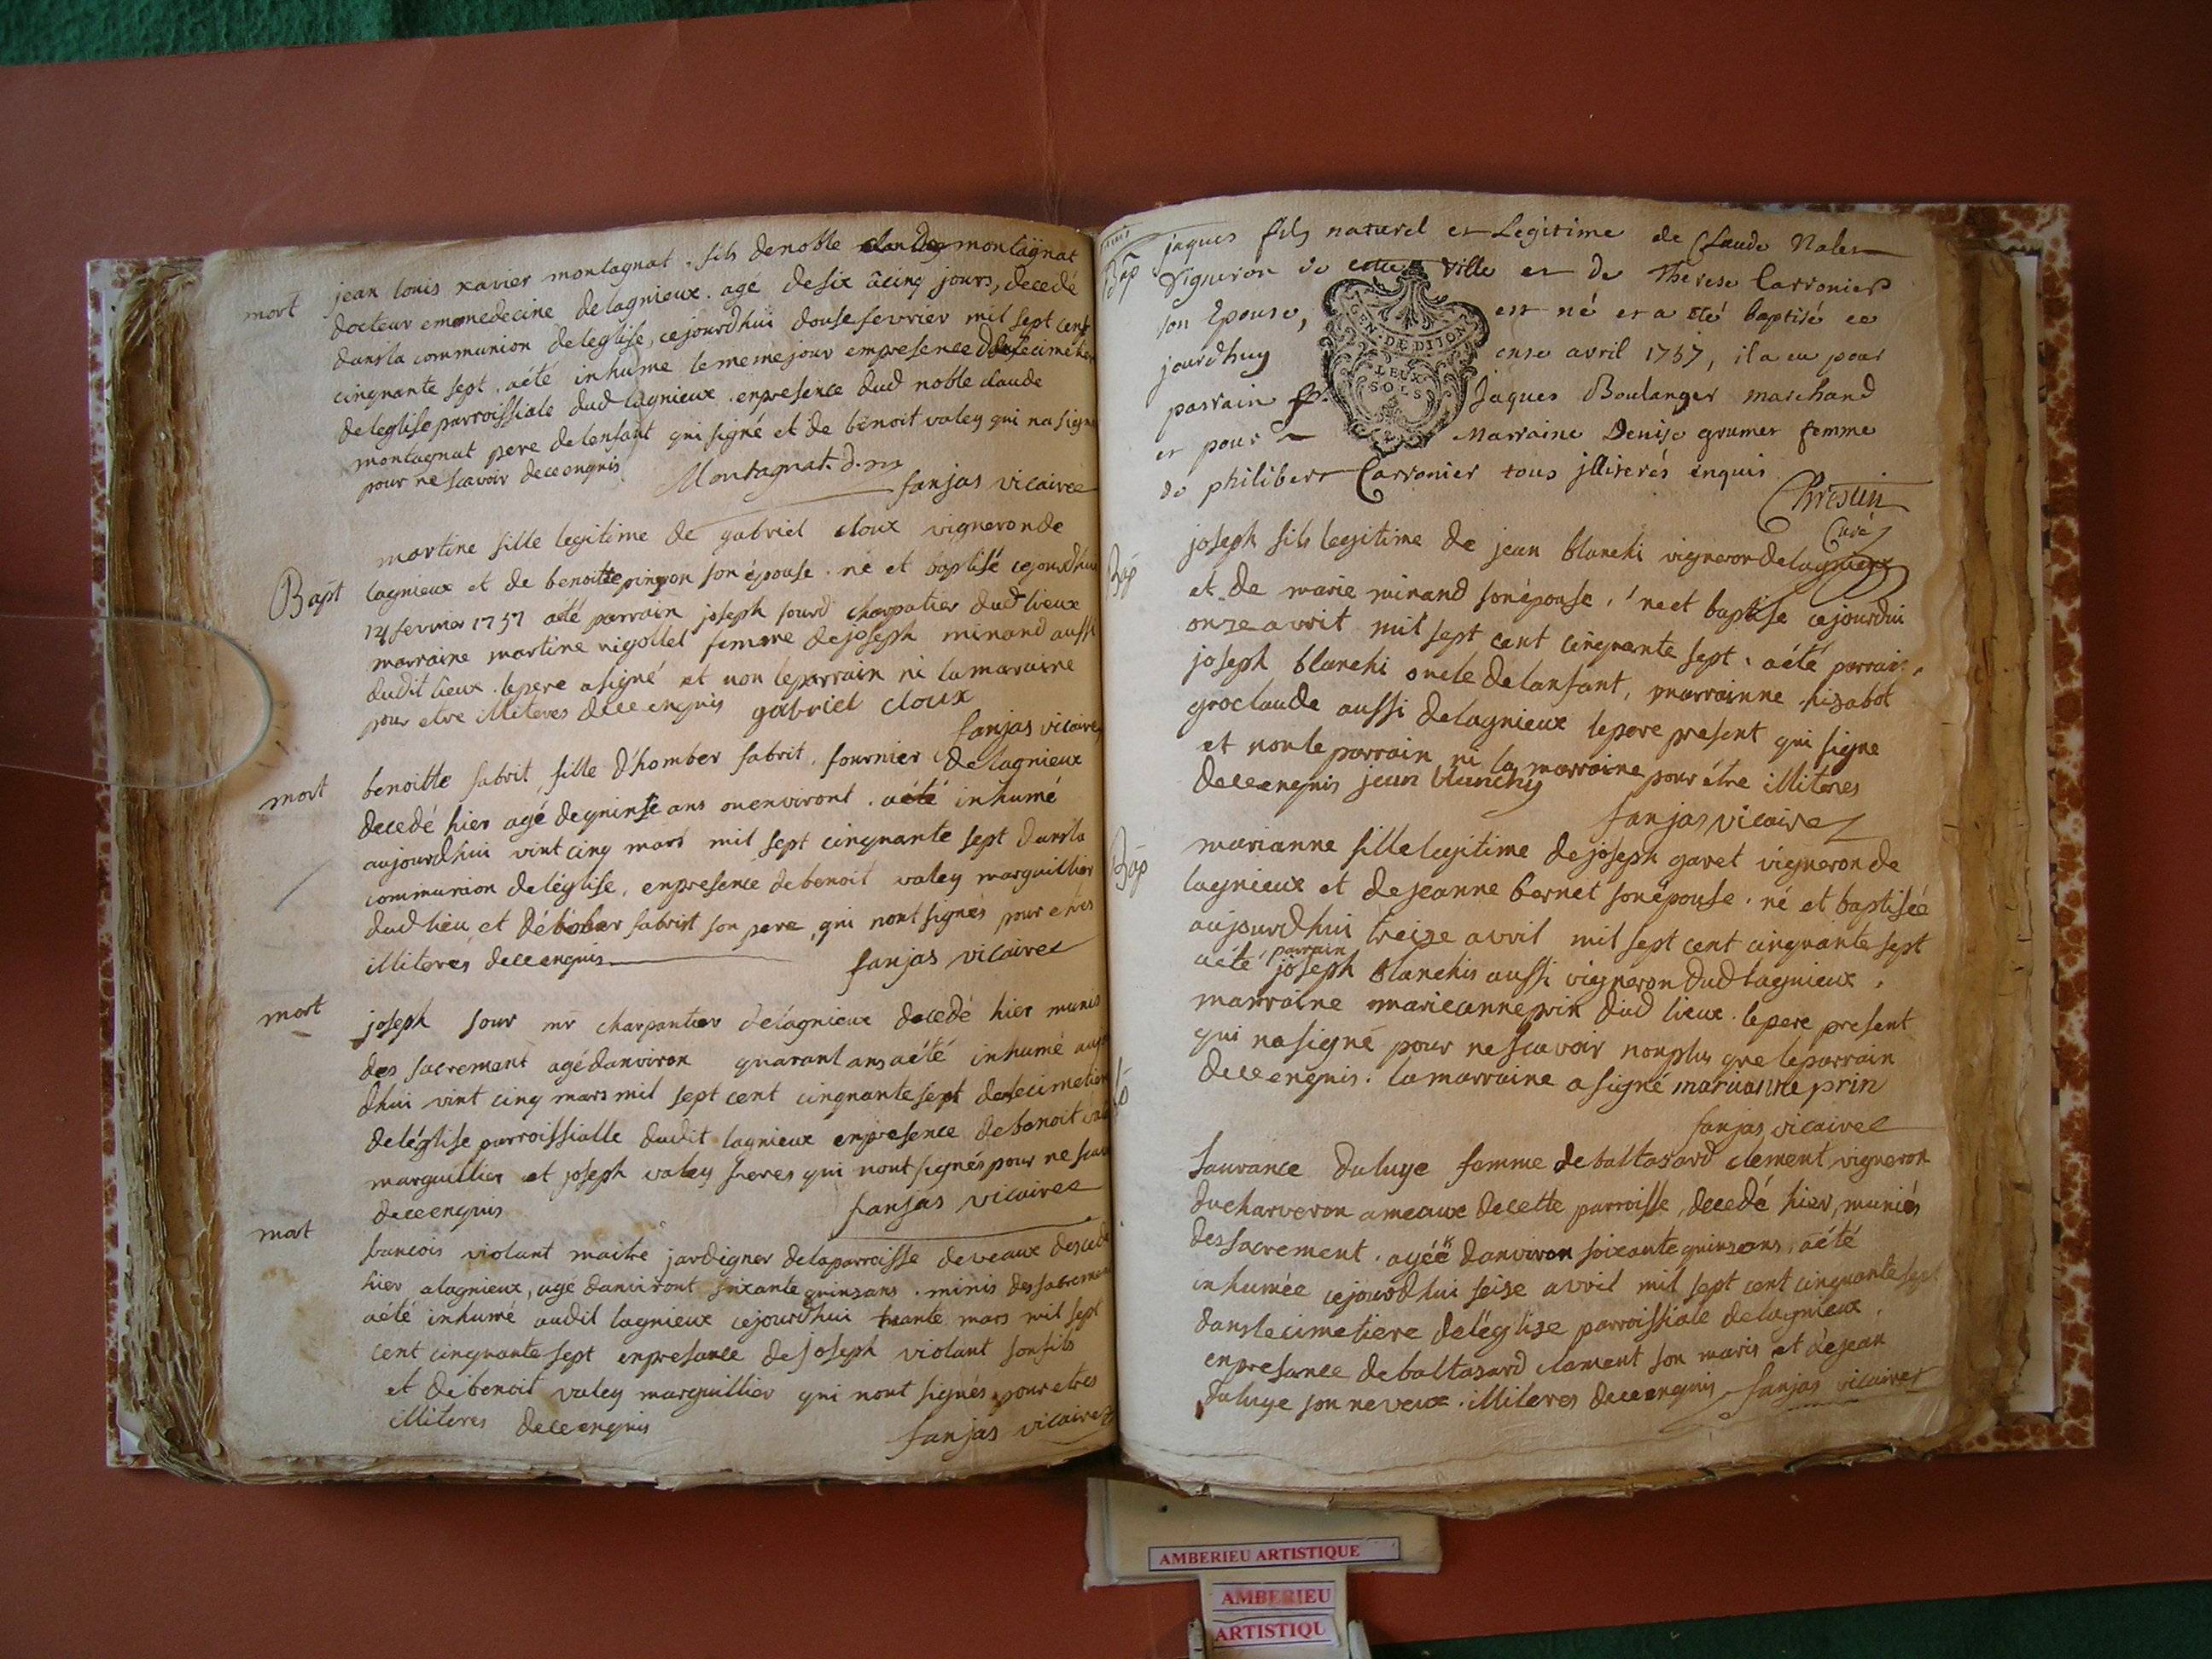 mort
jean louis xavier montagnat. fils denoble claude montagnat
docteur emmedecine delagnieux. agé desix àcinq jours, decedé
dansla communion deleglise, cejourdhui douse fevrier mil sept cent
cinquante sept. aété inhume lememejour empresence
deleglise parroissiale dud lagnieux. enpresence dud noble claude
montagnat pere delenfant qui signé et de benoit valey qui na signé
pour ne scavoir deceenquis Montagnat. d. m
fanjas vicaire
Bapt
martine fille legitime de gabriel cloux vigneronde
lagnieux et de benoitte pinson son épouse. né et baptisé cejourdhui
14 fevrier 1757 aété parrain joseph sourd charpatier dud lieux
marraine martine rigollet femme dejoseph minand aussi
dudit lieux. lepere asigné et non leparrain ni lamaraine
pour etre illiteres deceenquis gabriel cloux
fanjas vicaire
mort
benoitte fabrit, fille d'homber fabrit, fournier delagnieux
decedé hier agé dequinse ans onenviront. aété inhumé
aujourdhui vint cinq mars mil sept cinquante sept dansla
communion deléglise, enpresence debenoit valey marguillier
dud lieu et fabrit son pere, qui nont signés pour etres
illiteres deceenquis fanjas vicaire
mort
joseph sour mr charpantier delagnieux decedé hier munis
des sacremant agédanviron quarantans aété inhumé aujour
dhui vint cinq mars mil sept cent cinquante sept danslecimetiere
deléglise parroissialle dudit lagnieux enpresence debenoit valey
marguillier et joseph valey freres qui nont signés pour ne scavoir
deceenquis fanjas vicaire
mort
francois violant maitre jardigner delaparroisse deveaux descedé
hier alagnieux, agé danviront soixante quinsans. minis dessacremant
aété inhumé audit lagnieux cejourdhui trante mars mil sept
cent cinquante sept enpresance de joseph violant sonfils
et debenoit valey marguillier qui nont signés pour etres
illiteres deceenquis fanjas vicaire
Bap
jaques fils naturel et Legitime de Claude Nalet
Vigneron de cette Ville et de Therese Carronier
son Epouse, est né et a été baptisé ce
jourdhuy onse avril 1757, il a eu pour
parrain Jaques Boulanger marchand
et pour Marraine Denise grumet femme
de philibert Carronier tous jlliterés enquis
Christin
Curé
EN. DE DIJON
DEUX
SOLS
Bap
joseph fils legitime de jean blanchi vigneron delagnieux
et de marie minand sonépouse, né et baptise cejourdui
onze avrit mil sept cent cinquante sept, aété parrain,
joseph blanchi oncle delanfant, marrainne hisabot
groclaude aussi delagnieux lepere present qui signe
et nonle parrain ni la marraine pour étre illiteres
deceenquis jean blanchy
fanjas vicaire
Bap
marianne fille legitime dejoseph garet vigneronde
lagnieux et dejeanne bernet sonépouse. né et baptisée
aujourdhui treize avril mil sept cent cinquante sept
aété parrain joseph blanchis aussi vigneron dud lagnieux,
marraine marieanneprin dud lieux. lepere present
qui nasigné pour ne scavoir nonplus que leparrain
deceenquis. lamarraine a signé marianne prin
fanjas vicaire
laurance daluge famme debaltasard clement vigneron
ducharveron ameaux decette parroisse, decedé hier, muniés
dessacrement. agéé danviron soixante quinsans, aété
inhumée cejourdhui seise avril mil sept cent cinquante sept
danslecimetiere deléglise parroissiale delagnieux,
enpresance debaltasard clament son maris et dejean
daluge son neveux. illiteres deceenquis fanjas vicaire
AMBERIEU ARTISTIQUE
AMBERIEU
ARTISTIQU